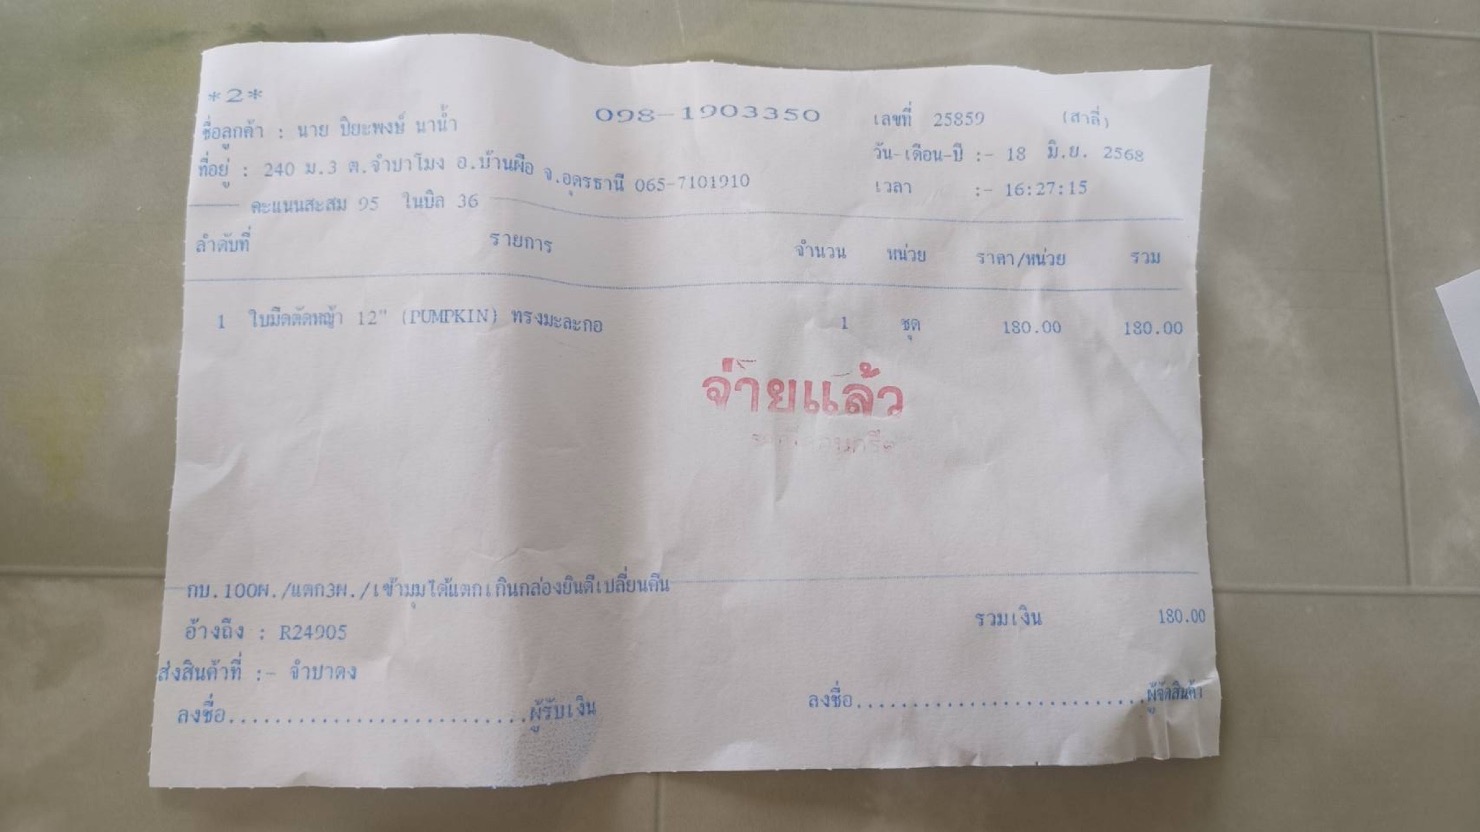 *2*
098-1903350
เลขที่ 25859 (สาลี่)
ชื่อลูกค้า : นาย ปิยะพงษ์ นาน้ำ
วัน-เดือน-ปี :- 18 มิ.ย. 2568
ที่อยู่ : 240 ม.3 ต.จำปาโมง อ.บ้านผือ จ.อุดรธานี 065-7101910
เวลา :- 16:27:15
คะแนนสะสม 95 ในบิล 36
ลำดับที่ รายการ จำนวน หน่วย ราคา/หน่วย รวม
1 ใบมีดตัดหญ้า 12" (PUMPKIN) ทรงมะละกอ 1 ชุด 180.00 180.00
จ่ายแล้ว
กบ.100ผ./แตก3ผ./เข้ามุมได้แตกเกินกล่องยินดีเปลี่ยนคืน
รวมเงิน 180.00
อ้างถึง : R24905
ส่งสินค้าที่ :- จำปาดง
ลงชื่อ..........................ผู้รับเงิน
ลงชื่อ.........................ผู้จัดสินค้า